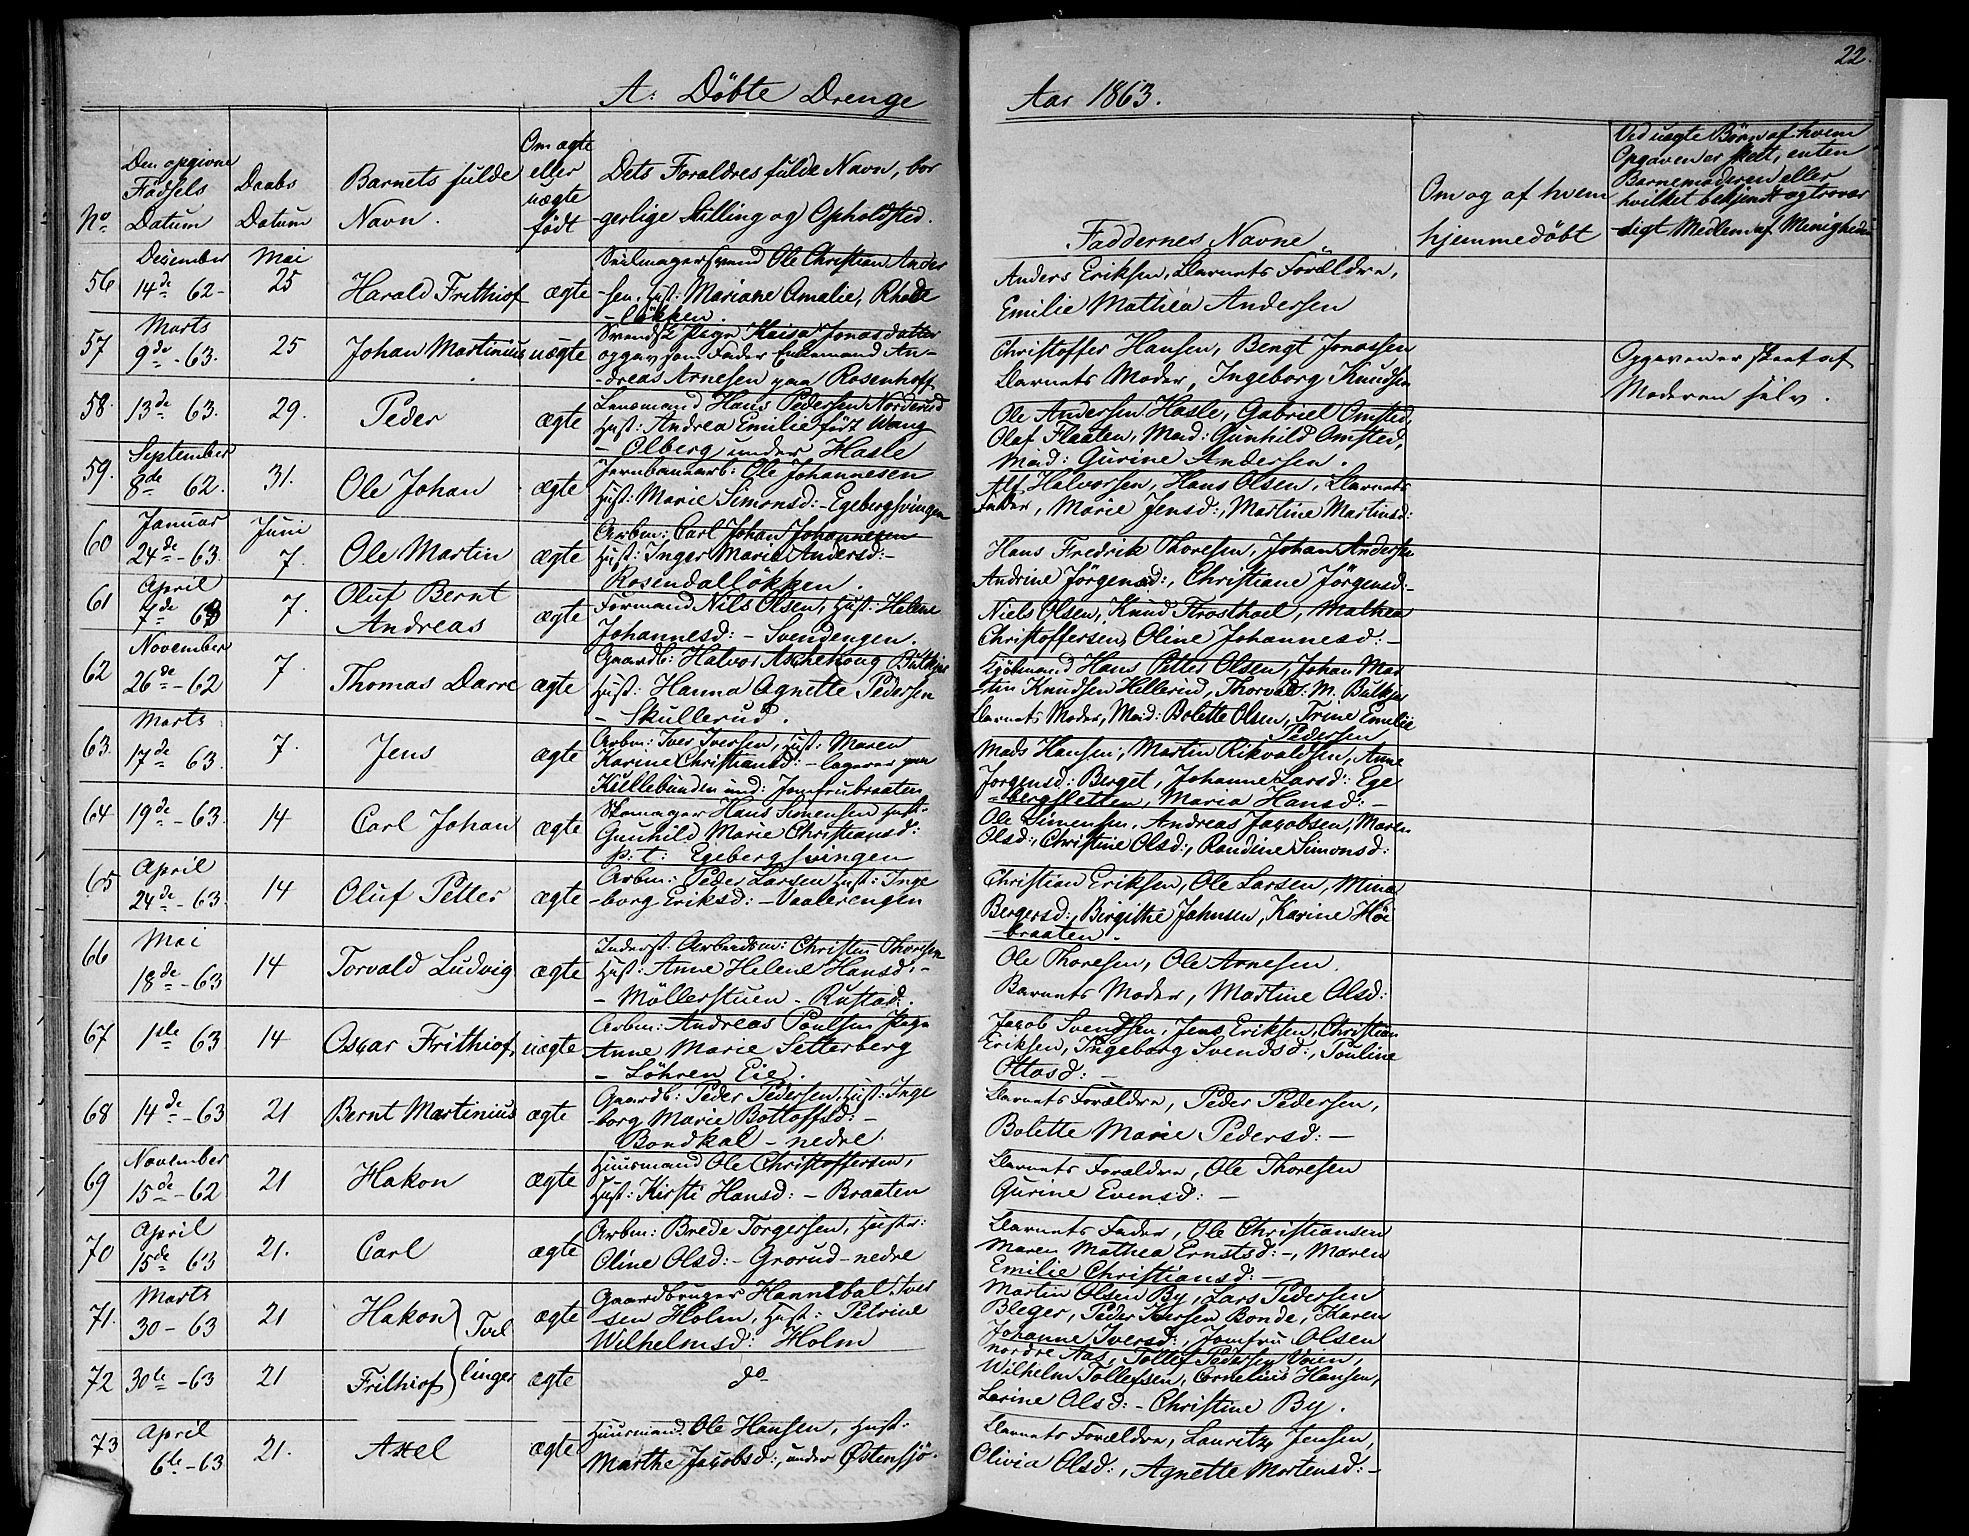 A: Döbte Drenge
No
Den opgivne
Födsels
Datum
Daabs
Datum
Barnets fulde
Navn.
Om ægte
eller
uægte
födt
Dets Forældres fulde Navn, bor
gerlige Stilling og Opholdsted.
56
December
14de 62-
Mai
25
Harald Frithiof
ægte
Seilmagersvend Ole Christian Ander
sen, Hust: Mariane Amalie, Rhode
- lökken.
57
Marts
9de - 63.
25
Johan Martinius
uægte
Svensk Pige Kaisa Jonasdatter
opgav som Fader Enkemand An-
dreas Arnesen paa Rosenhoff
58.
13de 63.
29.
Peder
ægte
Lensmand Hans Pedersen Norderud
Hust: Andrea Emilie födt Wang
- Olberg under Hasle
59.
September
8de 62.
31.
Ole Johan
ægte
Jernbanearb: Ole Johannesen
Hust: Marie Simonsd: - Egebergsvingen
60
Januar
24de - 63.
Juni
7.
Ole Martin
ægte
Arbm: Carl Johan Johannesen
Hust: Inger Marie Andersd:-
Rosendallökken.
61
April
7de 63
7.
Oluf Bernt
Andreas
ægte
Formand Nils Olsen, Hust: Helene
Johannesd: - Svendengen.
62
November
26de - 62
7.
Thomas Darre
ægte
Gaardb: Halvor Aschehoug
Hust: Hanna Agnette Pedersen
- Skullerud.
63.
Marts
17de 63.
7.
Jens
ægte
Arbm: Iver Iversen, Hust: Maren
Karine Christiansd: - logerer paa
Kullebunden und: Jomfrubraaten
64
19de - 63.
14
Carl Johan
ægte
Skomager Hans Simensen Hust:
Gunhild Marie Christiansd:
p: t: Egebergsvingen
65
April
24de - 63.
14
Oluf Petter
ægte
Arbm: Peder Larsen Hust: Inge
-borg Eriksd: - Vaalerengen
66
Mai
18de - 63
14
Torvald Ludvig
ægte
Inderst. Arbeidsm: Christen Thoresen
Hust: Anne Helene Hansd: -
- Möllerstuen - Rustad.
67
1ste 63
14
Oscar Frithiof,
uægte
Arbm: Andreas Poulsen Pige
Anne Marie Setterberg
- Löhren Eie.
68
14de - 63
21
Bernt Martinius
ægte
Gaardb: Peder Pedersen, Hust: Inge
-borg Marie Bottolfsd: -
Bondkal - nedre.
69
November
15de - 62
21
Hakon
ægte
Huusmand Ole Christoffersen,
Hust: Kirsti Hansd: - Braaten
70
April
15de 63
21.
Carl
ægte
Arbm: Brede Torgersen, Hustr:
Oline Olsd: - Grorud - nedre
71.
Marts
30 - 63
21
Hakon
Tvil
ægte
Gaardbruger Hannibal Iver
sen Holm, Hust: Petrine
Wilhelmsd: Holm
72
30te - 63
21
Frithiof
linger
ægte
do
73
April
6te - 63
21.
Axel
ægte
Huusmand Ole Hansen, Hust:
Marthe Jacobsd:, under Østensjö.
22.
Aar 1863.
Faddernes Navne
Om og af hvem
hjemmedöbt
Ved uægte Börn af hvem
Opgaven er skeet, enten
Barnemoderen eller
hvilket bekjendt og trovær
digt Medlem af Menigheden
Anders Eriksen, Barnets Forældre,
Emilie Mathea Andersen
Christoffer Hansen, Bengt Jonassen
Barnets Moder, Ingeborg Knudsen
Opgaven er skeet af
Moderen selv.
Ole Andersen Hasle, Gabriel Omsted,
Olaf Flaaten, Mad: Gunhild Omsted,
Mad: Gurine Andersen.
Alf Halvorsen, Hans Olsen, Barnets
Fader, Marie Jensd:, Martine Martinsd:
Hans Fredrik Thoresen, Johan Andersen
Andrine Jörgensd:, Christiane Jörgensd:
Niels Olsen, Knud Frosthoel, Mathea
Christoffersen, Oline Johannesd: -
Kjöbmand Hans Petter Olsen, Johan Mar
-tin Knudsen Hellerud, Thorvald: M.
Barnets Moder, Mad: Bolette Olsen, Trine Emilie
Pedersen
Mads Hansen, Martin Rikvaldsen, Anne
Jorgensd: Berget, Johanne Larsd: Ege
-bergsletten, Maria Hansd: -
Ole Simensen, Andreas Jacobsen, Maren
Olsd:, Christine Olsd:, Randine Simonsd:
Christian Eriksen, Ole Larsen, Mina
Bergersd:, Birgithe Johnsen, Karine Höi
-braaten.
Ole Thoresen, Ole Arnesen.
Barnets Moder, Martine Olsd:
Jacob Svendsen, Jens Eriksen, Christian
Eriksen, Ingeborg Svendsd:, Pouline
Ottosd: -
Barnets Forældre, Peder Pedersen,
Bolette Marie Pedersd: -
Barnets Forældre, Ole Thoresen
Gurine Evensd: -
Barnets Fader, Ole Christiansen
Maren Mathea Ernstsd: -, Maren
Emilie Christiansd: -
Martin Olsen By, Lars Pedersen
Bleger, Peder Bonde, Karen
Johanne Iversd:, Jomfru Olsen
nordre Aas, Tollef Pedersen Voien,
Wilhelm Tollefsen, Cornelius Hansen,
Larine Olsd: - Christine By.
Barnets Forældre, Lauritz Jensen,
Olivia Olsd:, Agnette Mortensd: -